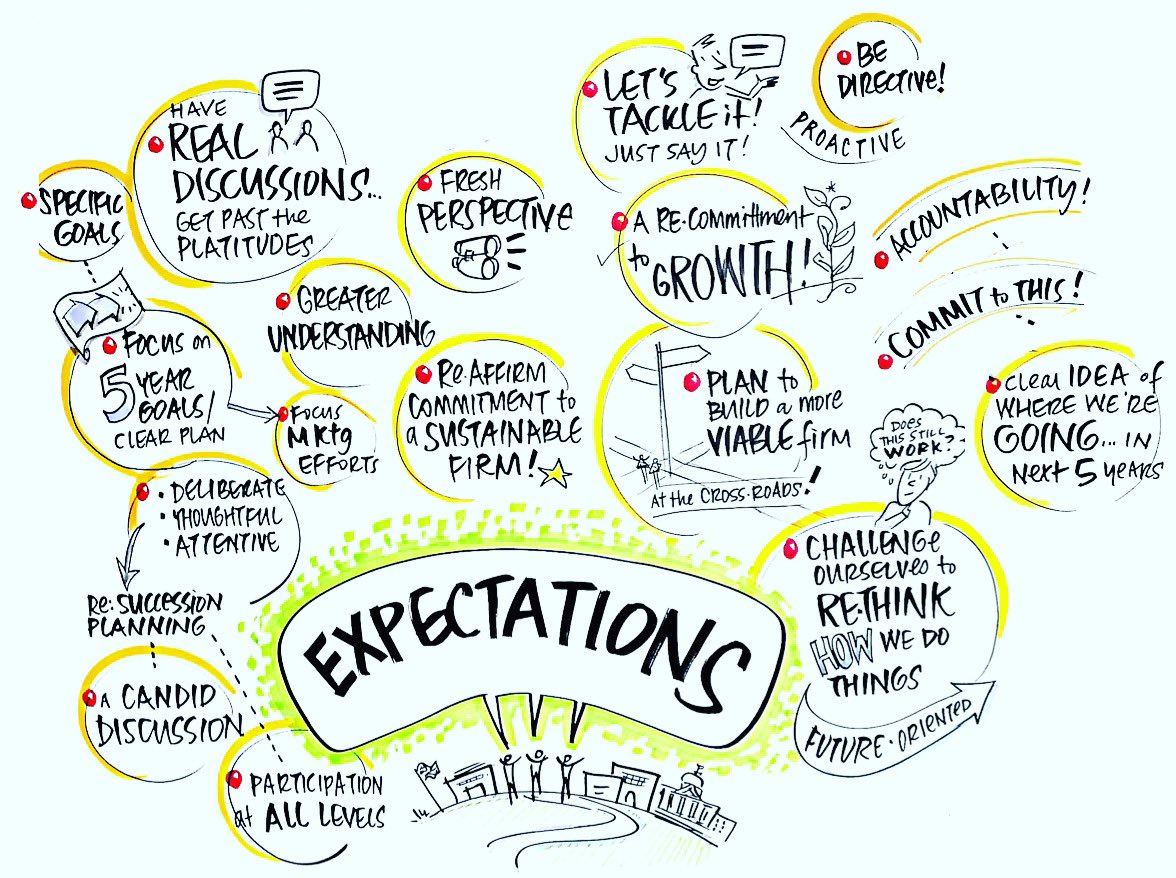 HAVE
REAL
DISCUSSIONS...
GET PAST the
PLATITUDES
SPECIFIC
GOALS
FOCUS on
5 YEAR
GOALS/
CLEAR PLAN
GREATER
UNDERSTANDING
FOCUS
MKtg
EFFORTS
• DELIBERATE
• THOUGHTFUL
• ATTENTIVE
Re: SUCCESSION
PLANNING
A CANDID
DISCUSSION
PARTICIPATION
at ALL LEVELS
FRESH
PERSPECTIVE
Re-AFFIRM
COMMITMENT to
a SUSTAINABLE
FIRM!
LET'S
TACKLE it!
JUST SAY IT!
BE
DIRECTIVE!
PROACTIVE
A RE-COMMITTMENT
to GROWTH!
ACCOUNTABILITY!
COMMIT to THIS!
PLAN to
BUILD a more
VIABLE firm
At the CROSS-ROADS!
Clear IDEA of
WHERE WE'RE
GOING... IN
Next 5 years
DOES
THIS STILL
WORK?
CHALLENGE
OURSELVES to
RE-THINK
HOW WE DO
THINGS
FUTURE-ORIENTED
EXPECTATIONS